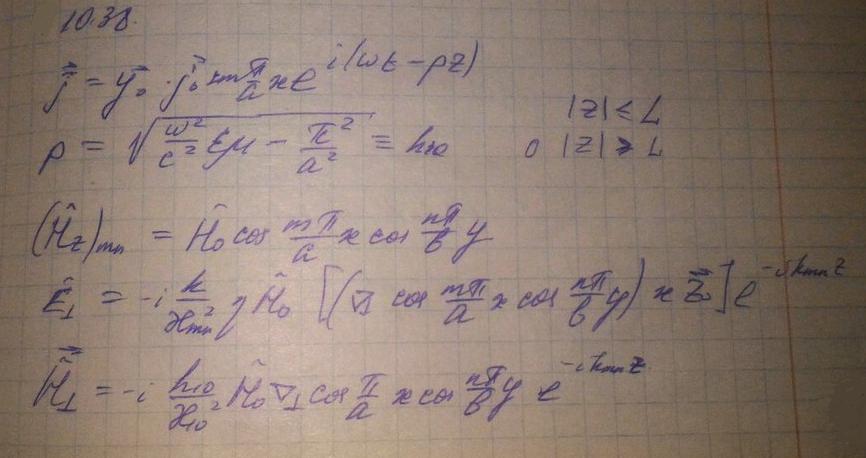 10.38.
j⃗ = y⃗₀ · j⃗₀ sin π/a x e^{i(ωt − pz)}
|z| ≤ L
p = √(ω²/c² εμ − π²/a²) = h₁₀
0 |z| > L
(Ĥ_z)_{mn} = Ĥ₀ cos mπ/a x cos nπ/b y
Ê_⊥ = −i k/ϰ²_{mn} η Ĥ₀ [(∇_⊥ cos mπ/a x cos nπ/b y) × z⃗₀] e^{−ih_{mn}z}
Ĥ⃗_⊥ = −i h₁₀/ϰ₁₀² Ĥ₀ ∇_⊥ cos π/a x cos nπ/b y e^{−ih_{mn}z}